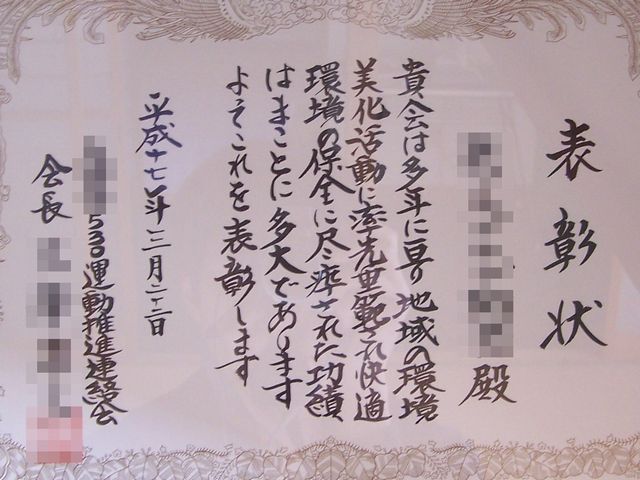 表彰状
殿
貴会は多年に亘り地域の環境
美化活動に率先垂範され快適
環境の保全に尽瘁された功績
はまことに多大であります
よってこれを表彰します
平成十七年三月二十三日
530運動推進連絡会
会長